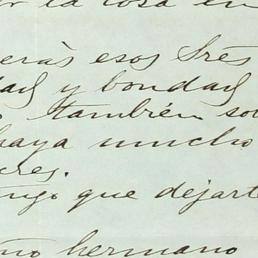 la cosa en
erás esos tres
dad y bondad
también so
haya mucho
res.
engo que dejarte
mo hermano